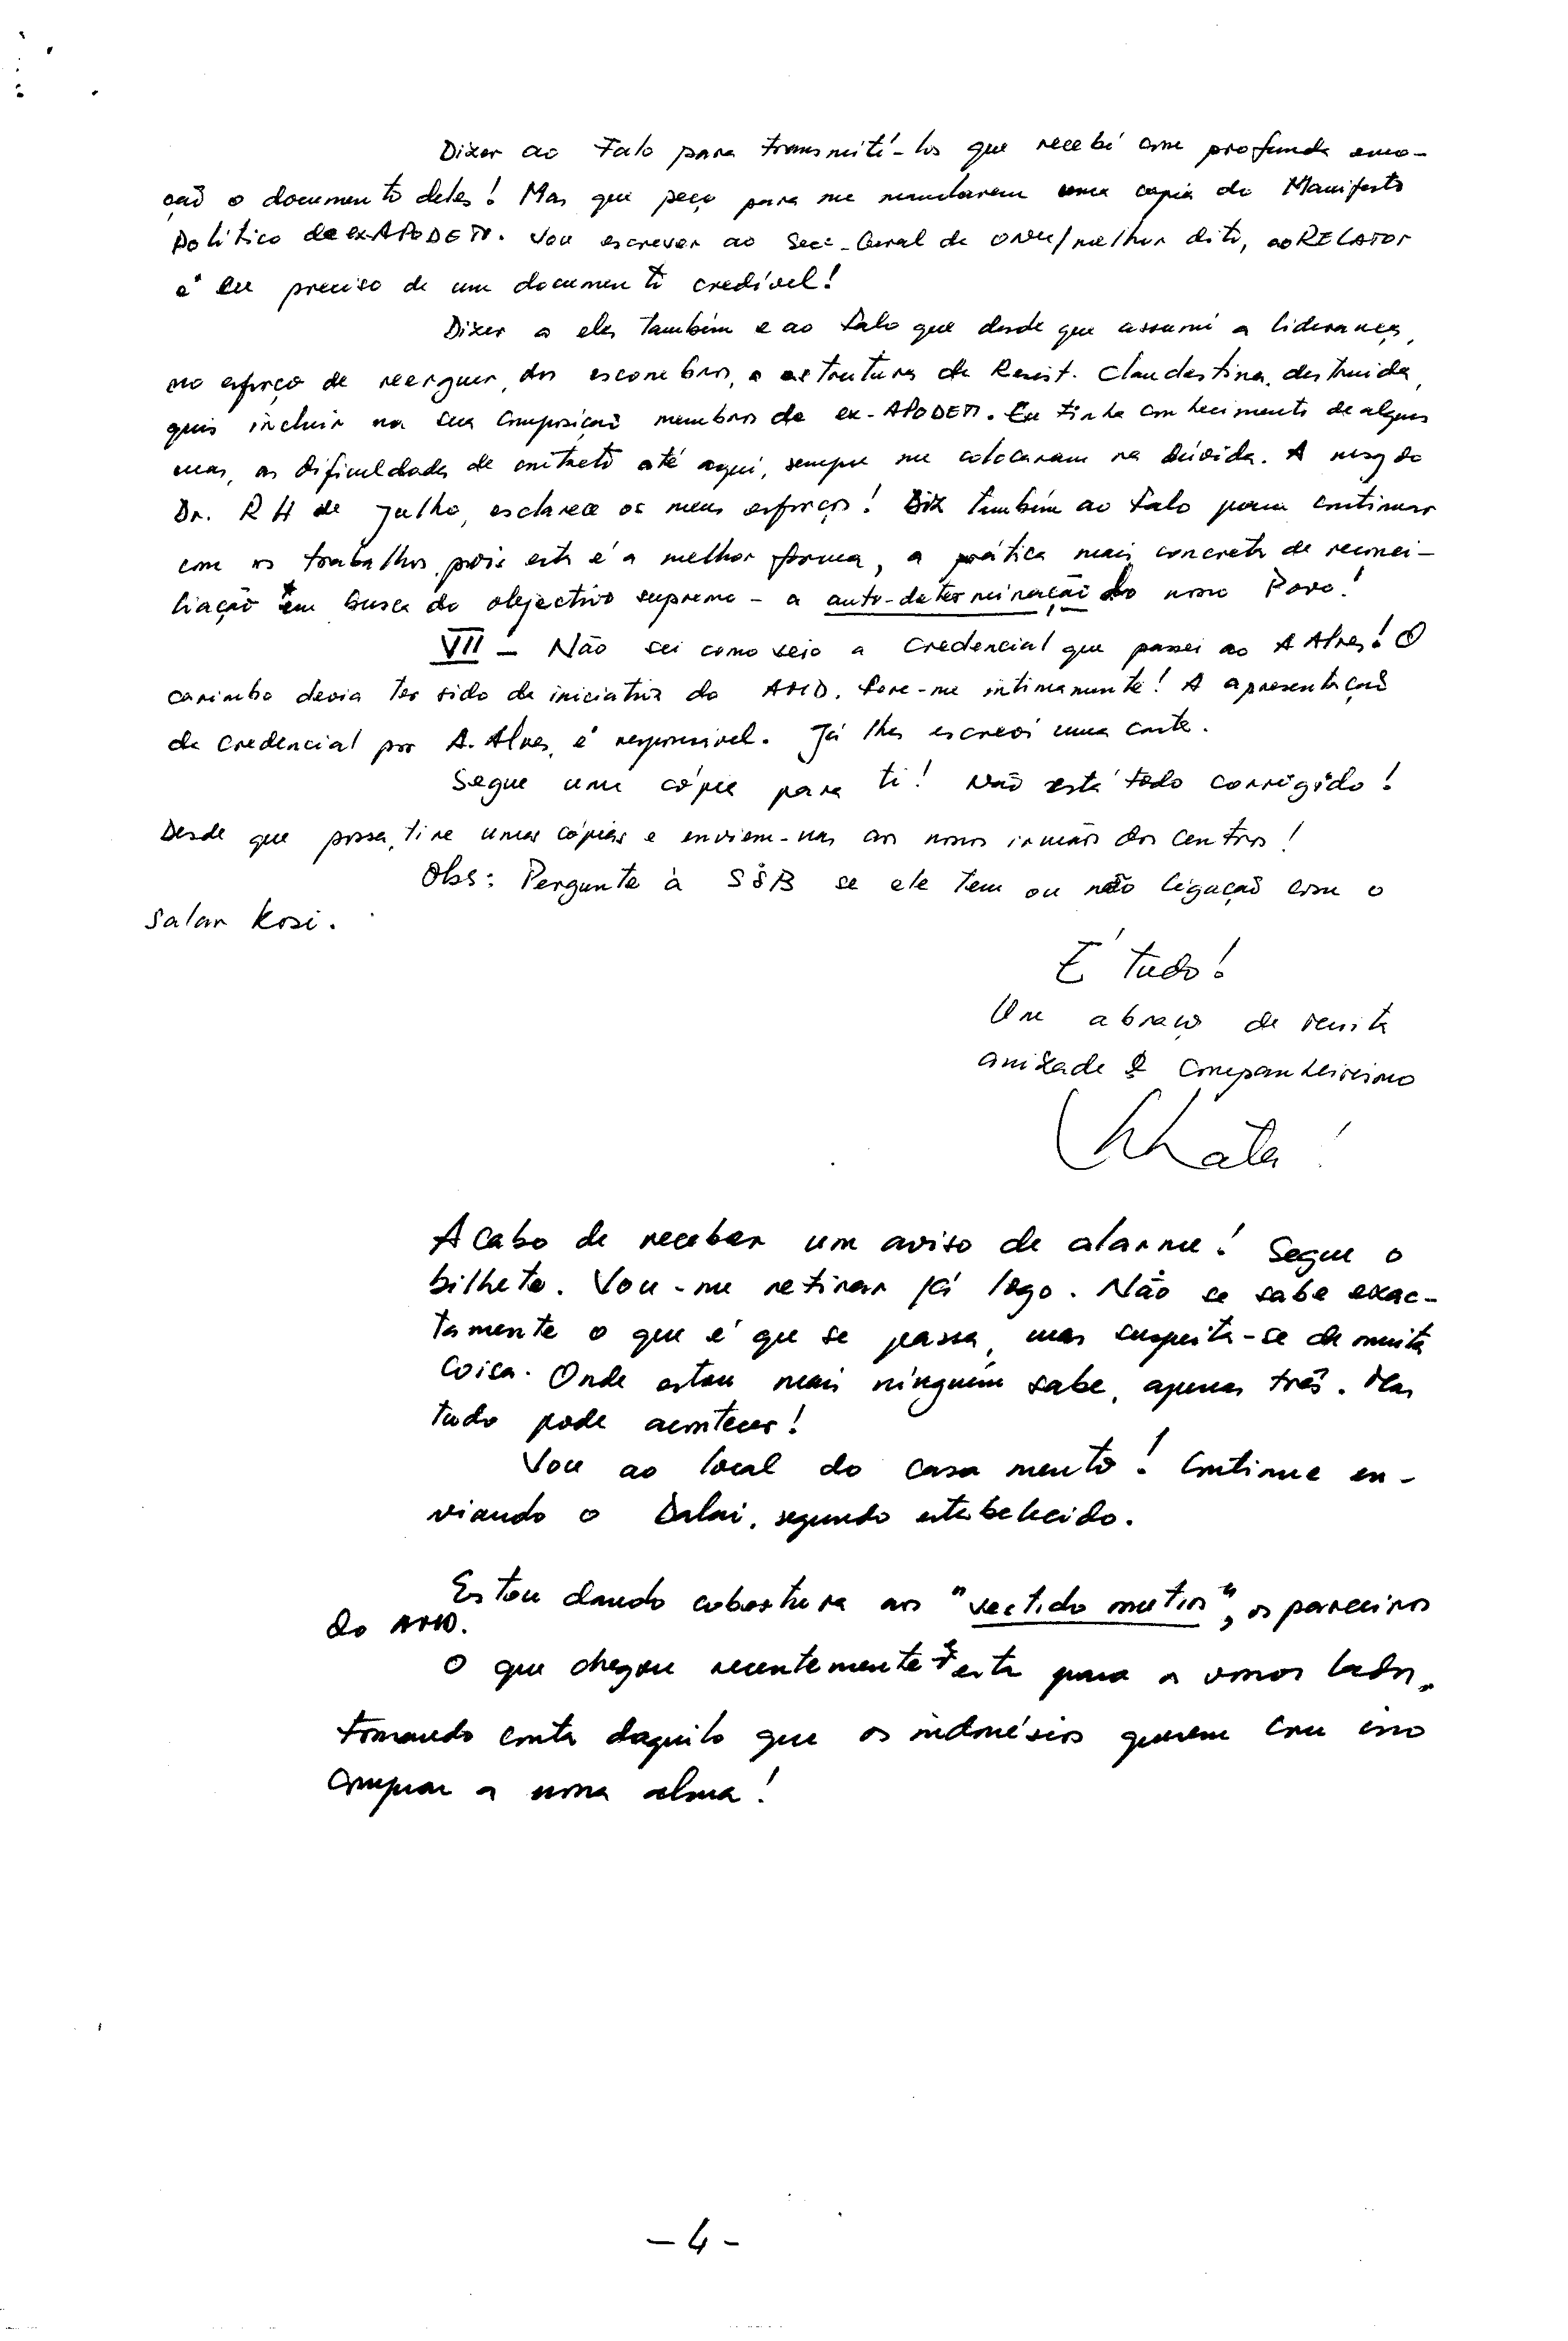 Dizer ao Falo para transmití-los que recebí com profunda emo-
ção o documento deles! Mas que peço para me mandarem uma copia do Manifesto
Político da ex-APODETI. Vou escrever ao Sec-Geral da ONU/melhor dito, ao RELATOR
e eu preciso de um documento credível!
Dizer a eles também e ao Falo que desde que assumí a liderança,
no esforço de reerguer, dos escombros, a estrutura da Resist. Clandestina, destruida,
quis incluir na sua composição membros da ex-APODETI. Eu tinha conhecimento de alguns
mas, as dificuldades de contacto até aqui, sempre me colocaram na dúvida. A msg do
Dr. R H de Julho, esclarece os meus esforços! Diz também ao Falo para continuar
com os trabalhos, pois esta é a melhor forma, a prática mais concreta de reconci-
liação em busca do objectivo supremo - a auto-determinação do nosso Povo!
VII - Não sei como veio a credencial que passei ao A Alves! O
carimbo devia ter sido da iniciativa do AMD. Fere-me intimamente! A apresentação
da credencial por A. Alves, é responsível. Já lhes escreví uma carta.
Segue uma cópia para ti! Não está todo corrigido!
Desde que possa, tire umas cópias e enviem-nas aos nossos irmãos dos centros!
Obs: Pergunte à SSB se ele tem ou não ligação com o
Salar Kosi.
É tudo!
Um abraço de muita
amizade e companheirismo
Acabo de receber um aviso de alarme! Segue o
bilhete. Vou-me retirar já logo. Não se sabe exac-
tamente o que é que se passa, mas suspeita-se de muita
coisa. Onde estou mais ninguém sabe, apenas três. Mas
tudo pode acontecer!
Vou ao local do casamento! Continue en-
viando o Dalai, segundo estabelecido.
Estou dando cobertura aos "vestido mutin", os parceiros
do AMD.
O que chegou recentemente está para os vossos lados,
tomando conta daquilo que os indonésios querem com isso
comprar a nossa alma!
- 4 -